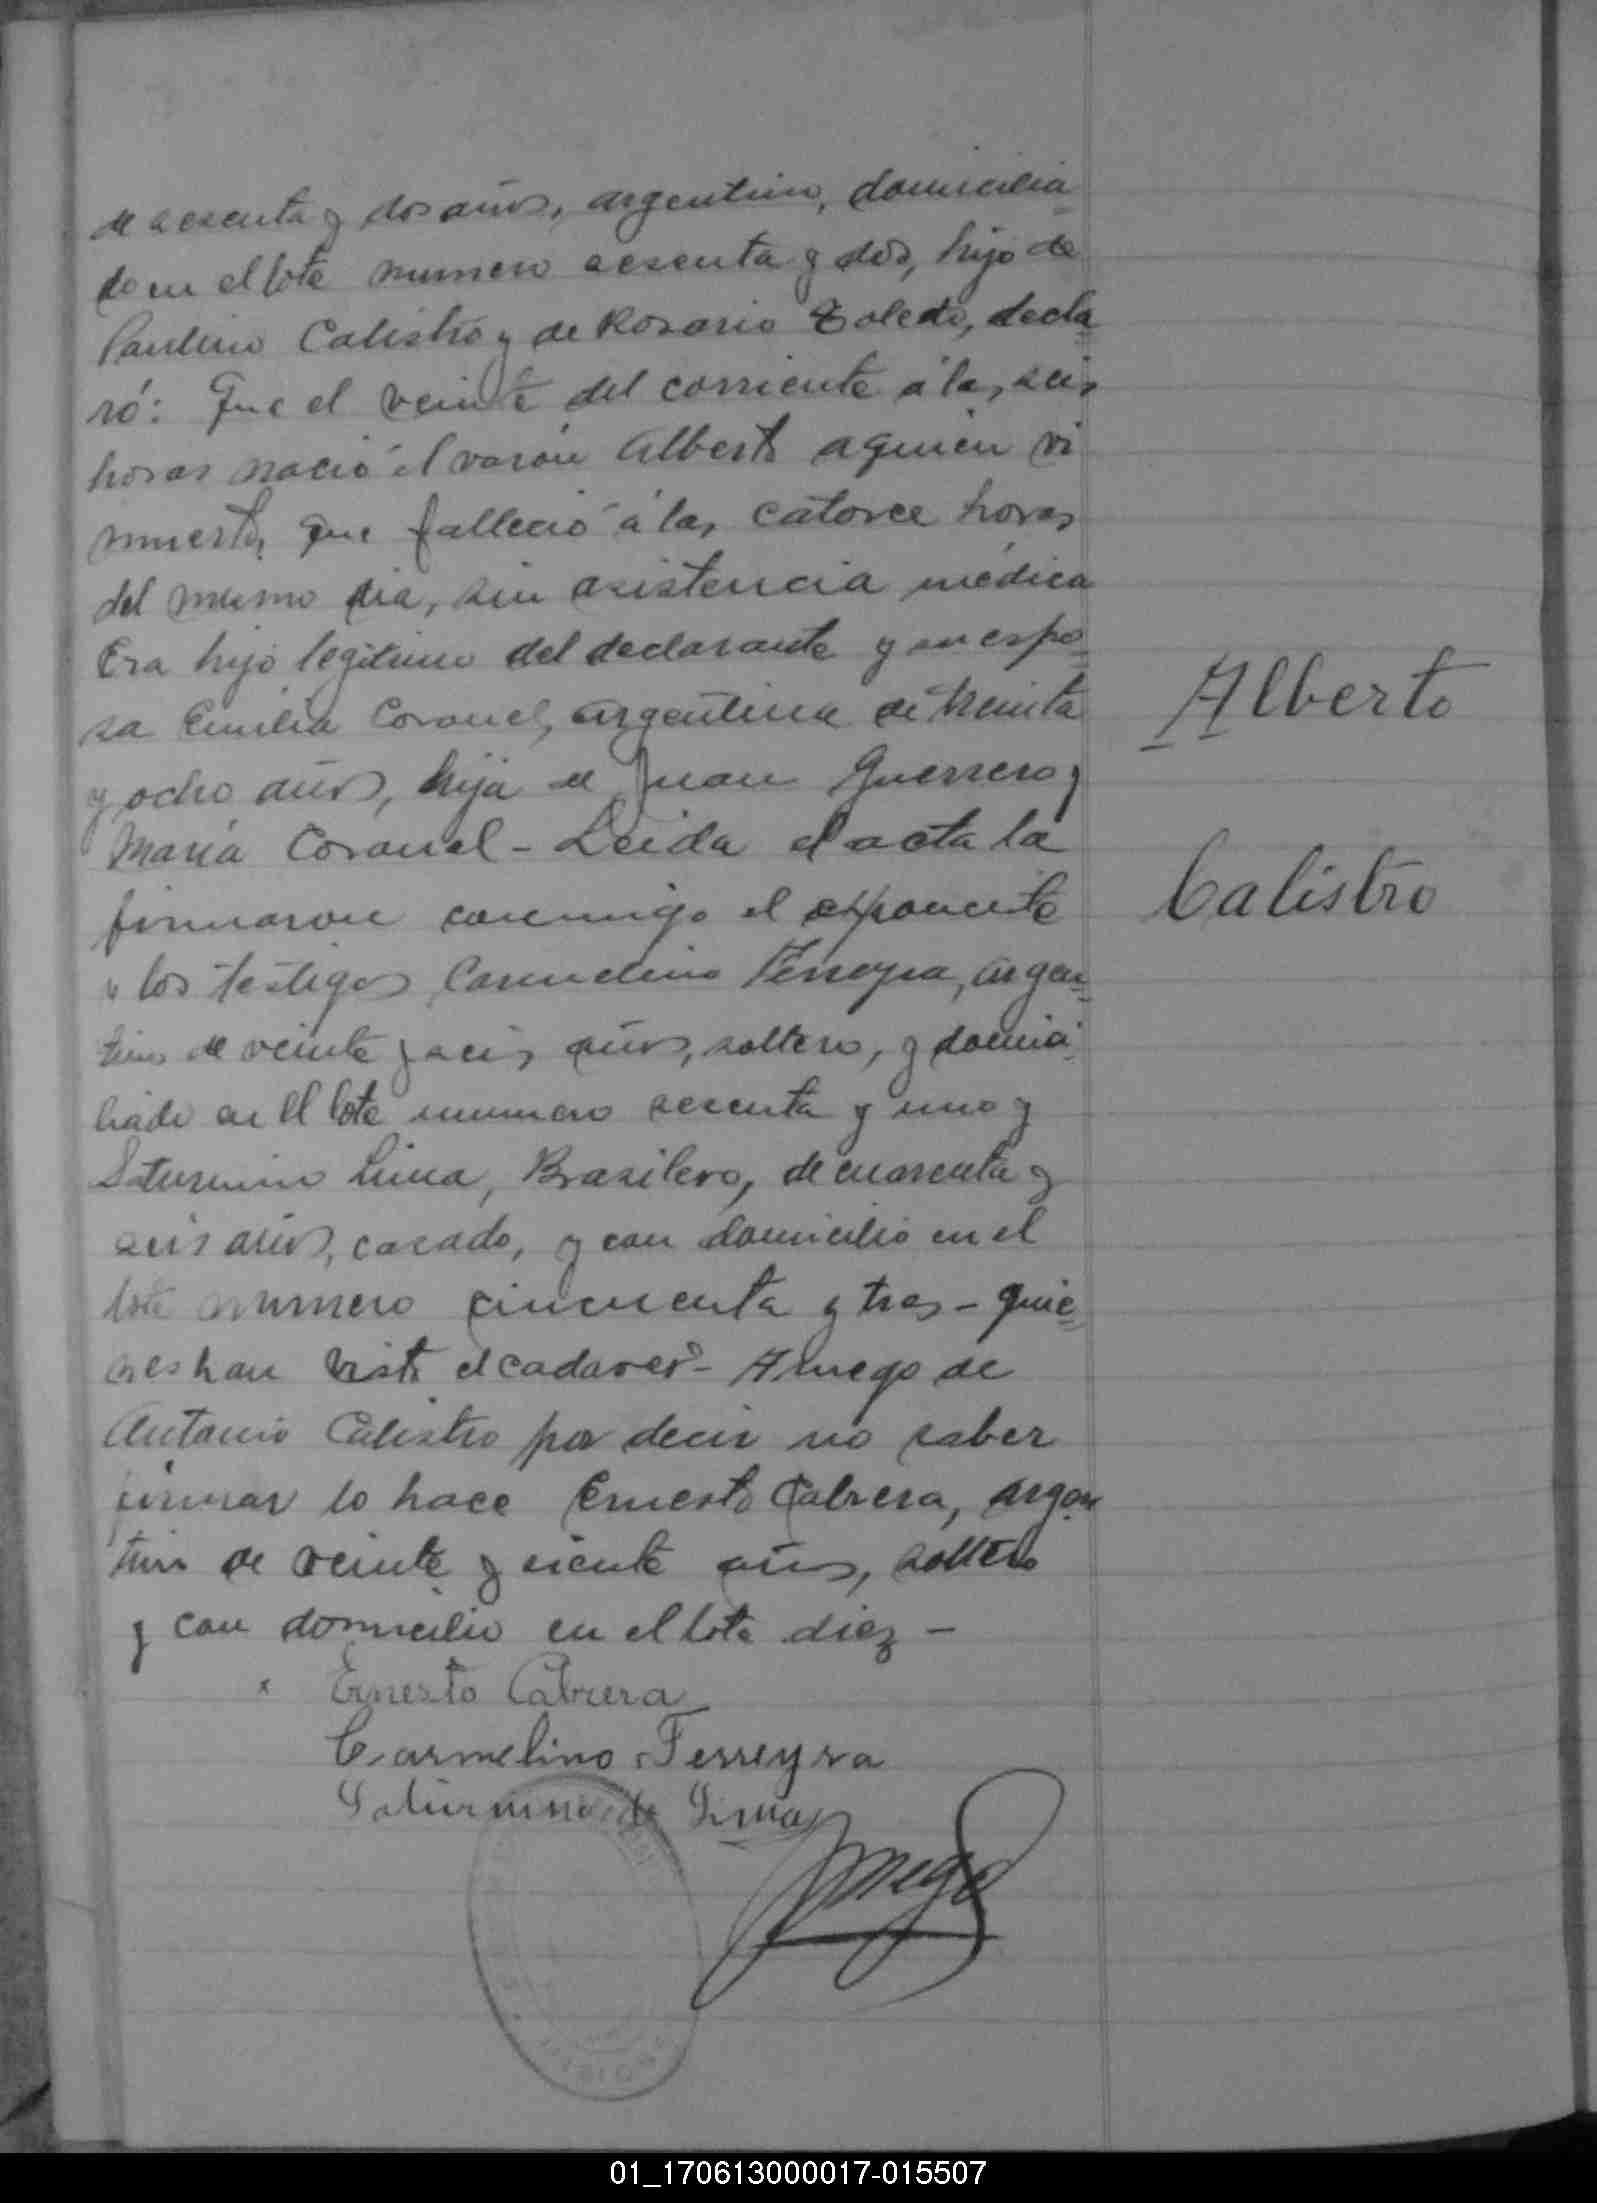 de sesenta y dos años, argentino, domicilia
do en el lote numero sesenta y dos, hijo de
Paulino Calistro y de Rosario Toledo, decla
ró: Que el veinte del corriente á las seis
horas nació el varón Alberto a quien vi
muerto, que falleció á las catorce horas
del mismo dia, sin asistencia médica
Era hijo legitimo del declarante y su espo
sa Emilia Coronel, argentina de treinta
y ocho años, hija de Juan Guerrero y
Maria Coronel - Leida el acta la
firmaron conmigo el exponente
y los testigos Carmelino Ferreyra, argen
tino de veinte y seis años, soltero, y domici
liado en el lote numero sesenta y uno y
Saturnino Lima, Brasilero, de cuarenta y
seis años, casado, y con domicilio en el
lote numero cincuenta y tres - quie
nes han visto el cadaver - A ruego de
Antonio Calistro por decir no saber
firmar lo hace Ernesto Cabrera, argen
tino de veinte y siente años, soltero
y con domicilio en el lote diez -
Ernesto Cabrera
Carmelino Ferreyra
Saturnino de Lima
Alberto
Calistro
01_170613000017-015507